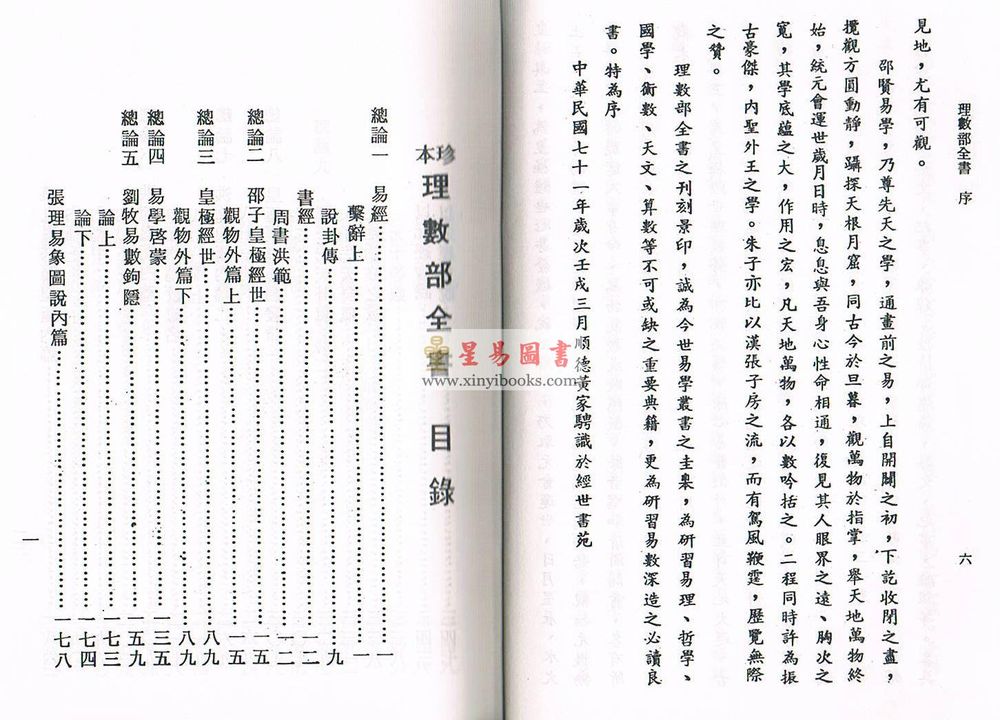 理數部全書 序
六
見地，尤有可觀。
邵賢易學，乃尊先天之學，通畫前之易，上自開闢之初，下訖收閉之盡，
攬觀方圓動靜，躡探天根月窟，同古今於旦暮，觀萬物於指掌，舉天地萬物終
始，統元會運世歲月日時，息息與吾身心性命相通，復見其人眼界之遠、胸次之
寬，其學底蘊之大，作用之宏，凡天地萬物，各以數吟括之。二程同時許為振
古豪傑，內聖外王之學。朱子亦比以漢張子房之流，而有駕風鞭霆，歷覽無際
之贊。
理數部全書之刊刻景印，誠為今世易學叢書之圭臬，為研習易理、哲學、
國學、術數、天文、算數等不可或缺之重要典籍，更為研習易數深造之必讀良
書。特為序
中華民國七十一年歲次壬戌三月順德黃家騁識於經世書苑
珍本理數部全書 目錄
總論一 易經……一
繫辭上……一
說卦傳……九
書經……一二
周書洪範……一二
總論二 邵子皇極經世……一五
觀物外篇上……一五
總論三 皇極經世……八九
觀物外篇下……八九
總論四 易學啓蒙……一三五
總論五 劉牧易數鉤隱……一五九
論上……一七三
論下……一七四
張理易象圖說內篇……一七八
一
星易圖書
www.xinyibooks.com